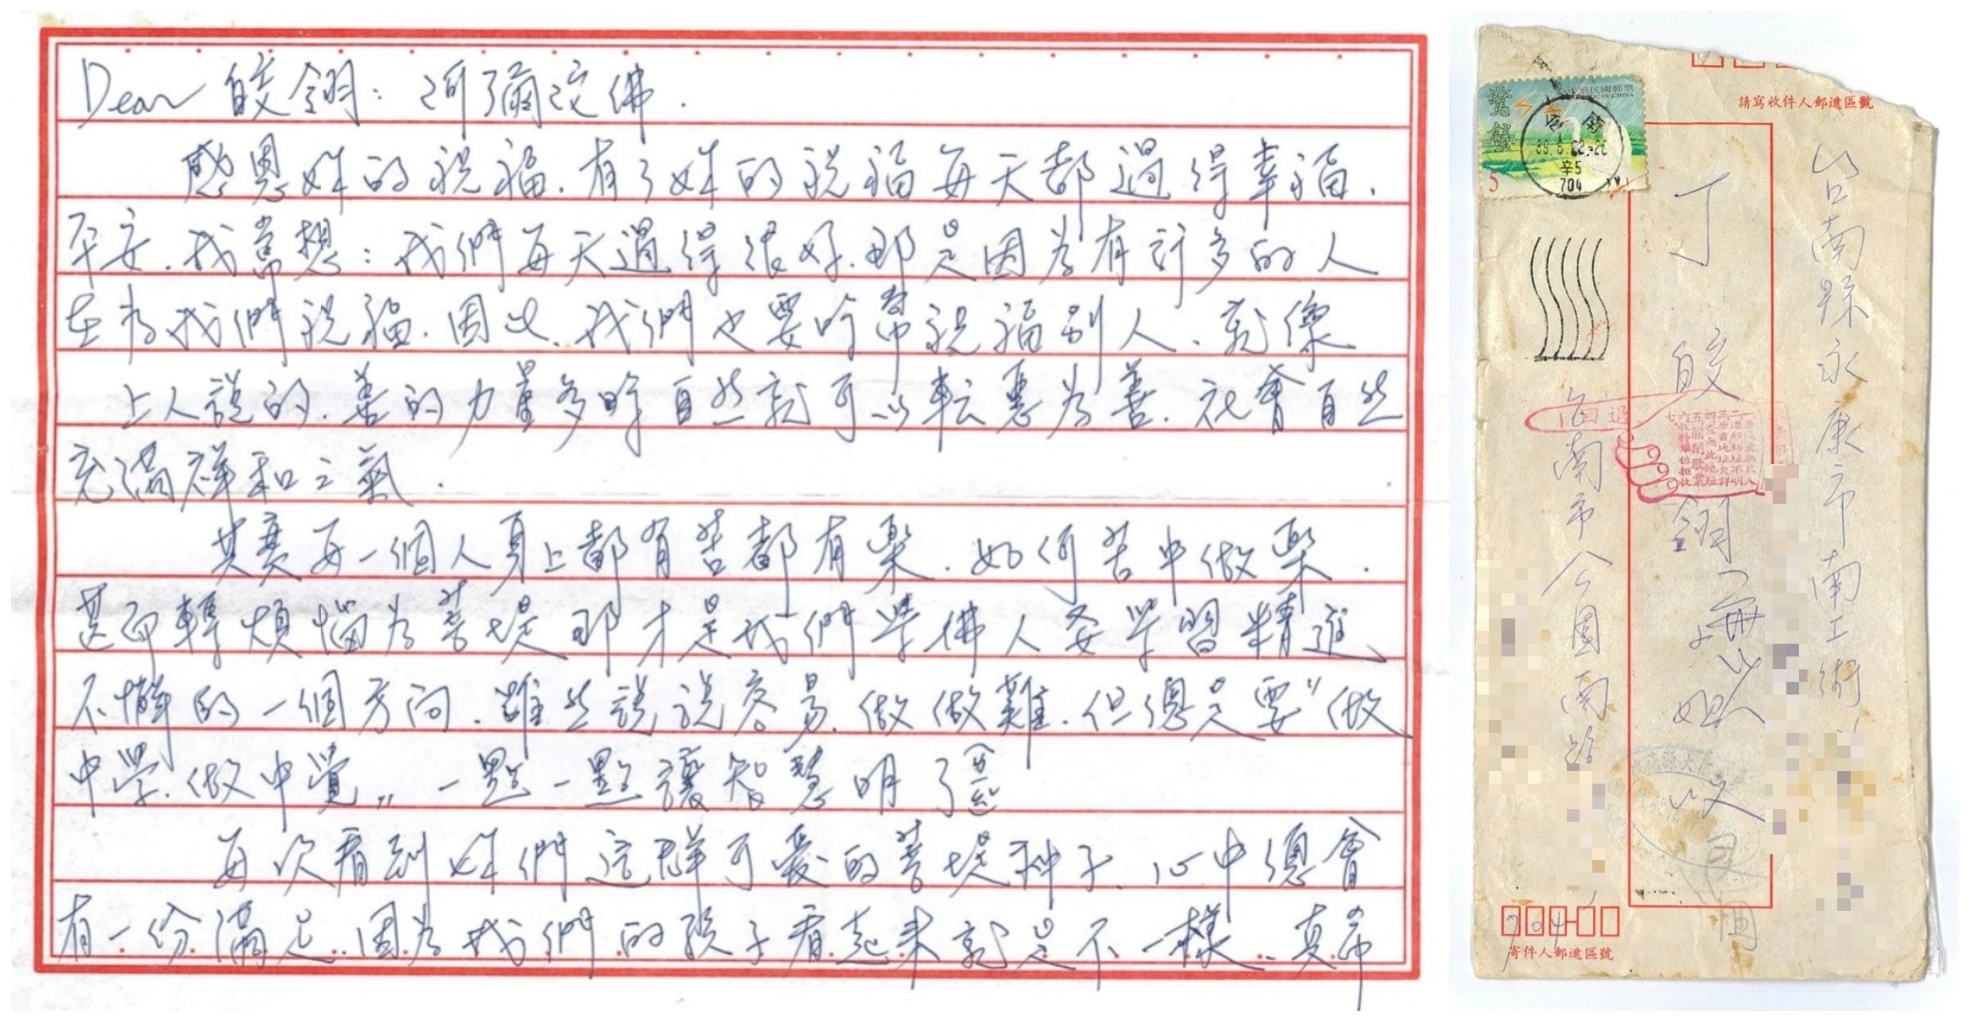 Dear 皎翎：阿彌陀佛.
感恩妳的祝福.有了妳的祝福每天都過得幸福.
平安.我常想：我們每天過得很好.那是因為有許多的人
在為我們祝福.因此、我們也要時常祝福別人、就像
上人說的.善的力量多時自然就可以轉惡為善.社會自然
充滿祥和之氣.
其實每一個人身上都有苦都有樂.如何苦中做樂.
甚而轉煩惱為菩提那才是我們學佛人要學習精進、
不懈的一個方向.雖然說說容易.做做難.但總是要"做
中學.做中覺"一點一點讓智慧明了
每次看到妳們這群可愛的菩提種子、心中總會
有一份滿足.因為我們的孩子看起來就是不一樣、真希
請寫收件人郵遞區號
台南縣永康市南工街
丁皎翎小姐 收
台南市公園南路
退回
中華民國郵票
5
台南
85.6.22
辛5
704
704
寄件人郵遞區號